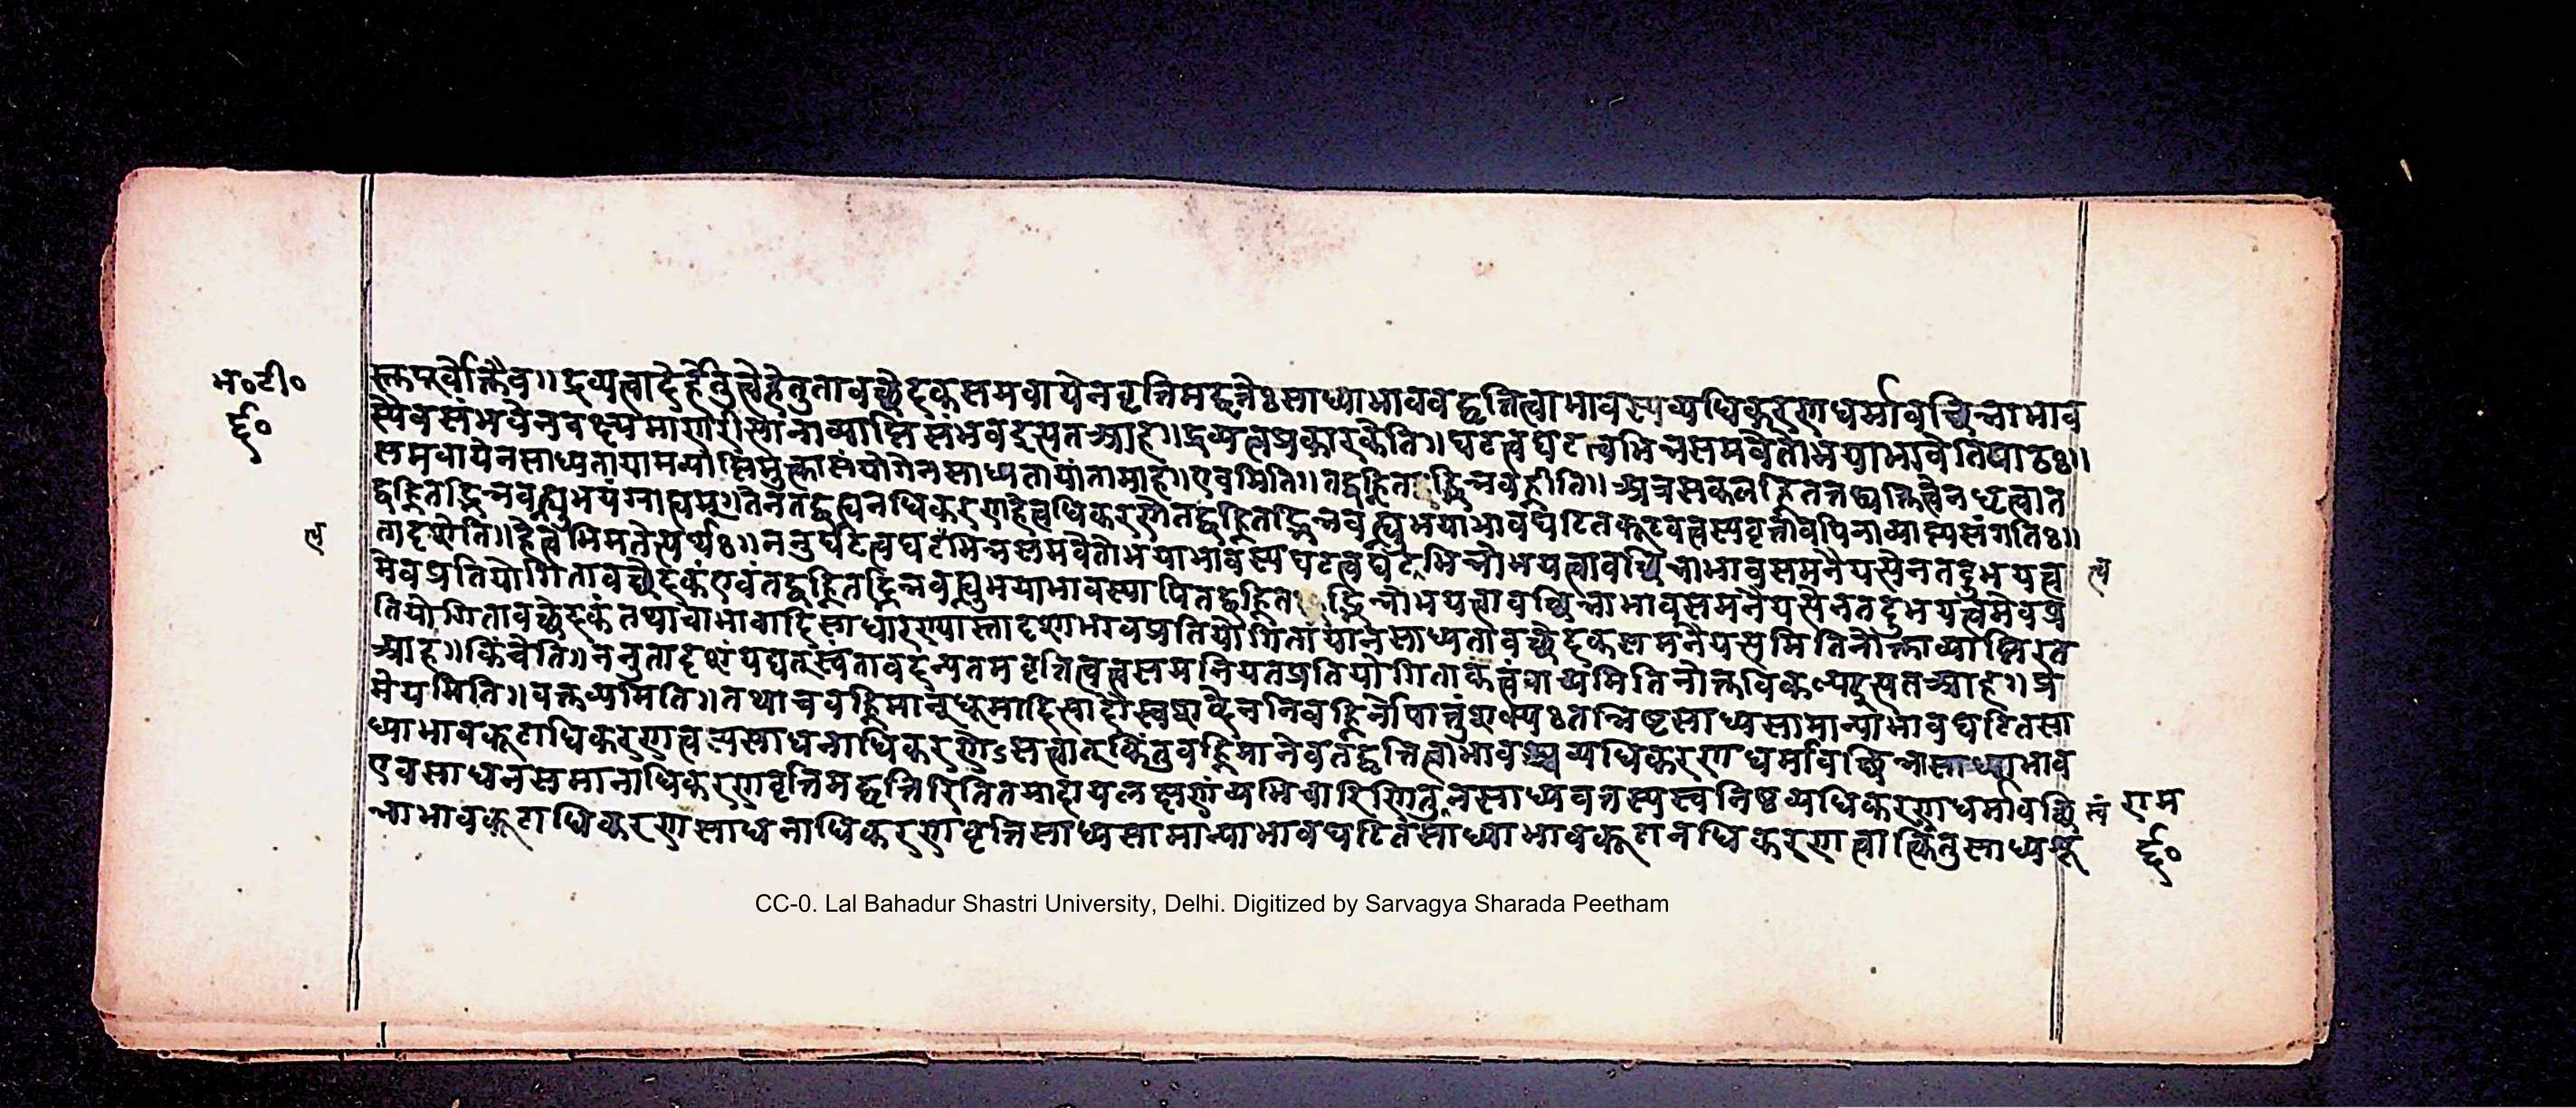 भ०टी०
र्द्द०
क्तमर्वोक्तैव॥द्रव्यत्वादेर्हेतुत्वेहेतुतावच्छेदकसमवायेनवृत्तिमद्वृत्तेःसाध्याभाववद्वृत्तित्वाभावस्यव्यधिकरणधर्मावच्छिन्नाभाव
स्यैवसंभवेनवक्ष्यमाणरीत्यानाव्याप्तिसंभवइत्यतआह॥द्रव्यत्वप्रकारकेति॥घटत्वंघटत्वभिन्नसमवेतोभयाभावेतिपाठः॥
समवायेनसाध्यतायामव्याप्तिमुक्त्वासंयोगेनसाध्यतायांतामाह॥एवमिति॥तद्वह्नितद्भिन्नवह्नीति॥अत्रसकलवह्नितत्तद्व्यक्तित्वेनधृत्वात
द्वह्नितद्भिन्नवृत्त्युभयंग्राह्यम्॥तेनतद्वह्न्यनधिकरणहेत्वधिकरणेतद्वह्नितद्भिन्नवृत्त्युभयाभावघटितकूटवत्त्वस्यवृत्तावपिनाव्याप्त्यसंगतिः॥
तादृशेति॥हेत्वभिमतेत्यर्थः॥ननुघटत्वघटभिन्नसमवेतोभयाभावस्यघटत्वघटभिन्नोभयत्वावच्छिन्नाभावसमनैयत्येनतदुभयत्व
त्व
त्य
मेवप्रतियोगितावच्छेदकंएवंतद्वह्नितद्भिन्नवह्न्युभयाभावस्यापितद्वह्नितद्भिन्नोभयत्वावच्छिन्नाभावसमनैयत्येनतदुभयत्वमेवप्र
तियोगितावच्छेदकंतथाचाभावादिसाधारण्यास्तादृशाभावप्रतियोगितायानसाध्यतावच्छेदकसमनैयत्यमितिनोक्ताव्याप्तिरत
आह॥किंचेति॥ननुतादृशंयद्यत्स्वंतावदन्यतमवृत्तित्वत्वसमनियतप्रतियोगिताकत्वंवाच्यमितिनोक्तविकल्पइत्यतआह॥प्र
मेयमिति॥वक्तव्यमिति॥तथाचवह्निमान्धूमादित्यादौस्वपदेननिर्वह्निर्नोपात्तुंशक्यःतन्निष्टसाध्यसामान्याभावघटितसा
ध्याभावकूटाधिकरणत्वस्यसाधनाधिकरणेऽसत्वात्किंतुवह्निमानेवतद्वृत्तित्वाभावश्चव्यधिकरणधर्मावच्छिन्नसाध्याभाव
एवसाधनसमानाधिकरणवृत्तिमद्वृत्तिरितितमादायलक्षणंव्यभिचारिणितुनसाध्यवत्तस्यस्वनिष्ठव्यधिकरणधर्मावच्छि
त्वं
राम
न्नाभावकूटाधिकरणसाधनाधिकरणेवृत्तिसाध्यसामान्याभावघटितसाध्याभावकूटानधिकरणत्वात्किंतुसाध्यशू
र्द्द०
CC-0. Lal Bahadur Shastri University, Delhi. Digitized by Sarvagya Sharada Peetham